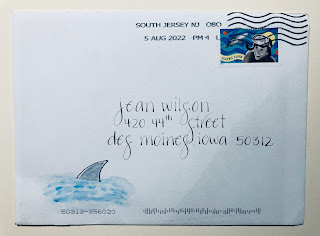 SOUTH JERSEY NJ 080
5 AUG 2022 PM 4 L
jean wilson
420 44th street
des moines, iowa 50312
50312-256020